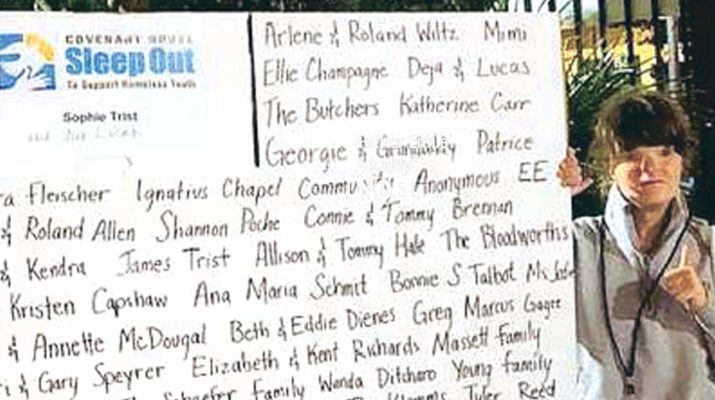 COVENANT HOUSE
Sleep Out
To Support Homeless Youth
Sophie Trist
Arlene & Roland Wiltz Mimi
Ellie Champagne Deja & Lucas
The Butchers Katherine Carr
Georgie & Patrice
Fleischer Ignatius Chapel Community Anonymous EE
& Roland Allen Shannon Poche Connie & Tommy Brennan
& Kendra James Trist Allison & Tommy Hale The Bloodworths
Kristen Capshaw Ana Maria Schmit Bonnie S Talbot
& Annette McDougal Beth & Eddie Dienes Greg Marcus Gagee
& Gary Speyrer Elizabeth & Kent Richards Massett Family
Schaefer Family Wanda Ditchero Young family
Tyler Reed